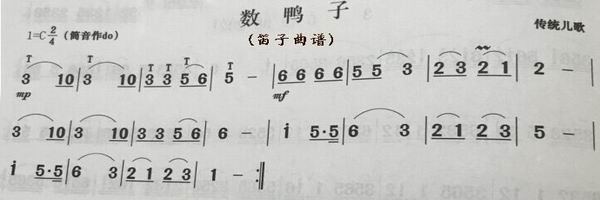 数 鸭 子
(笛子曲谱)
1=C 2/4 (筒音作do)
传统儿歌
T T T T T T
3 10 | 3 10 | 3 3 5 6 | 5 – | 6 6 6 6 | 5 5 3 | 2 3 2 1 | 2 – |
mp mf
3 10 | 3 10 | 3 3 5 6 | 6 – | i 5·5 | 6 3 | 2 1 2 3 | 5 – |
i 5·5 | 6 3 | 2 1 2 3 | 1 – :||